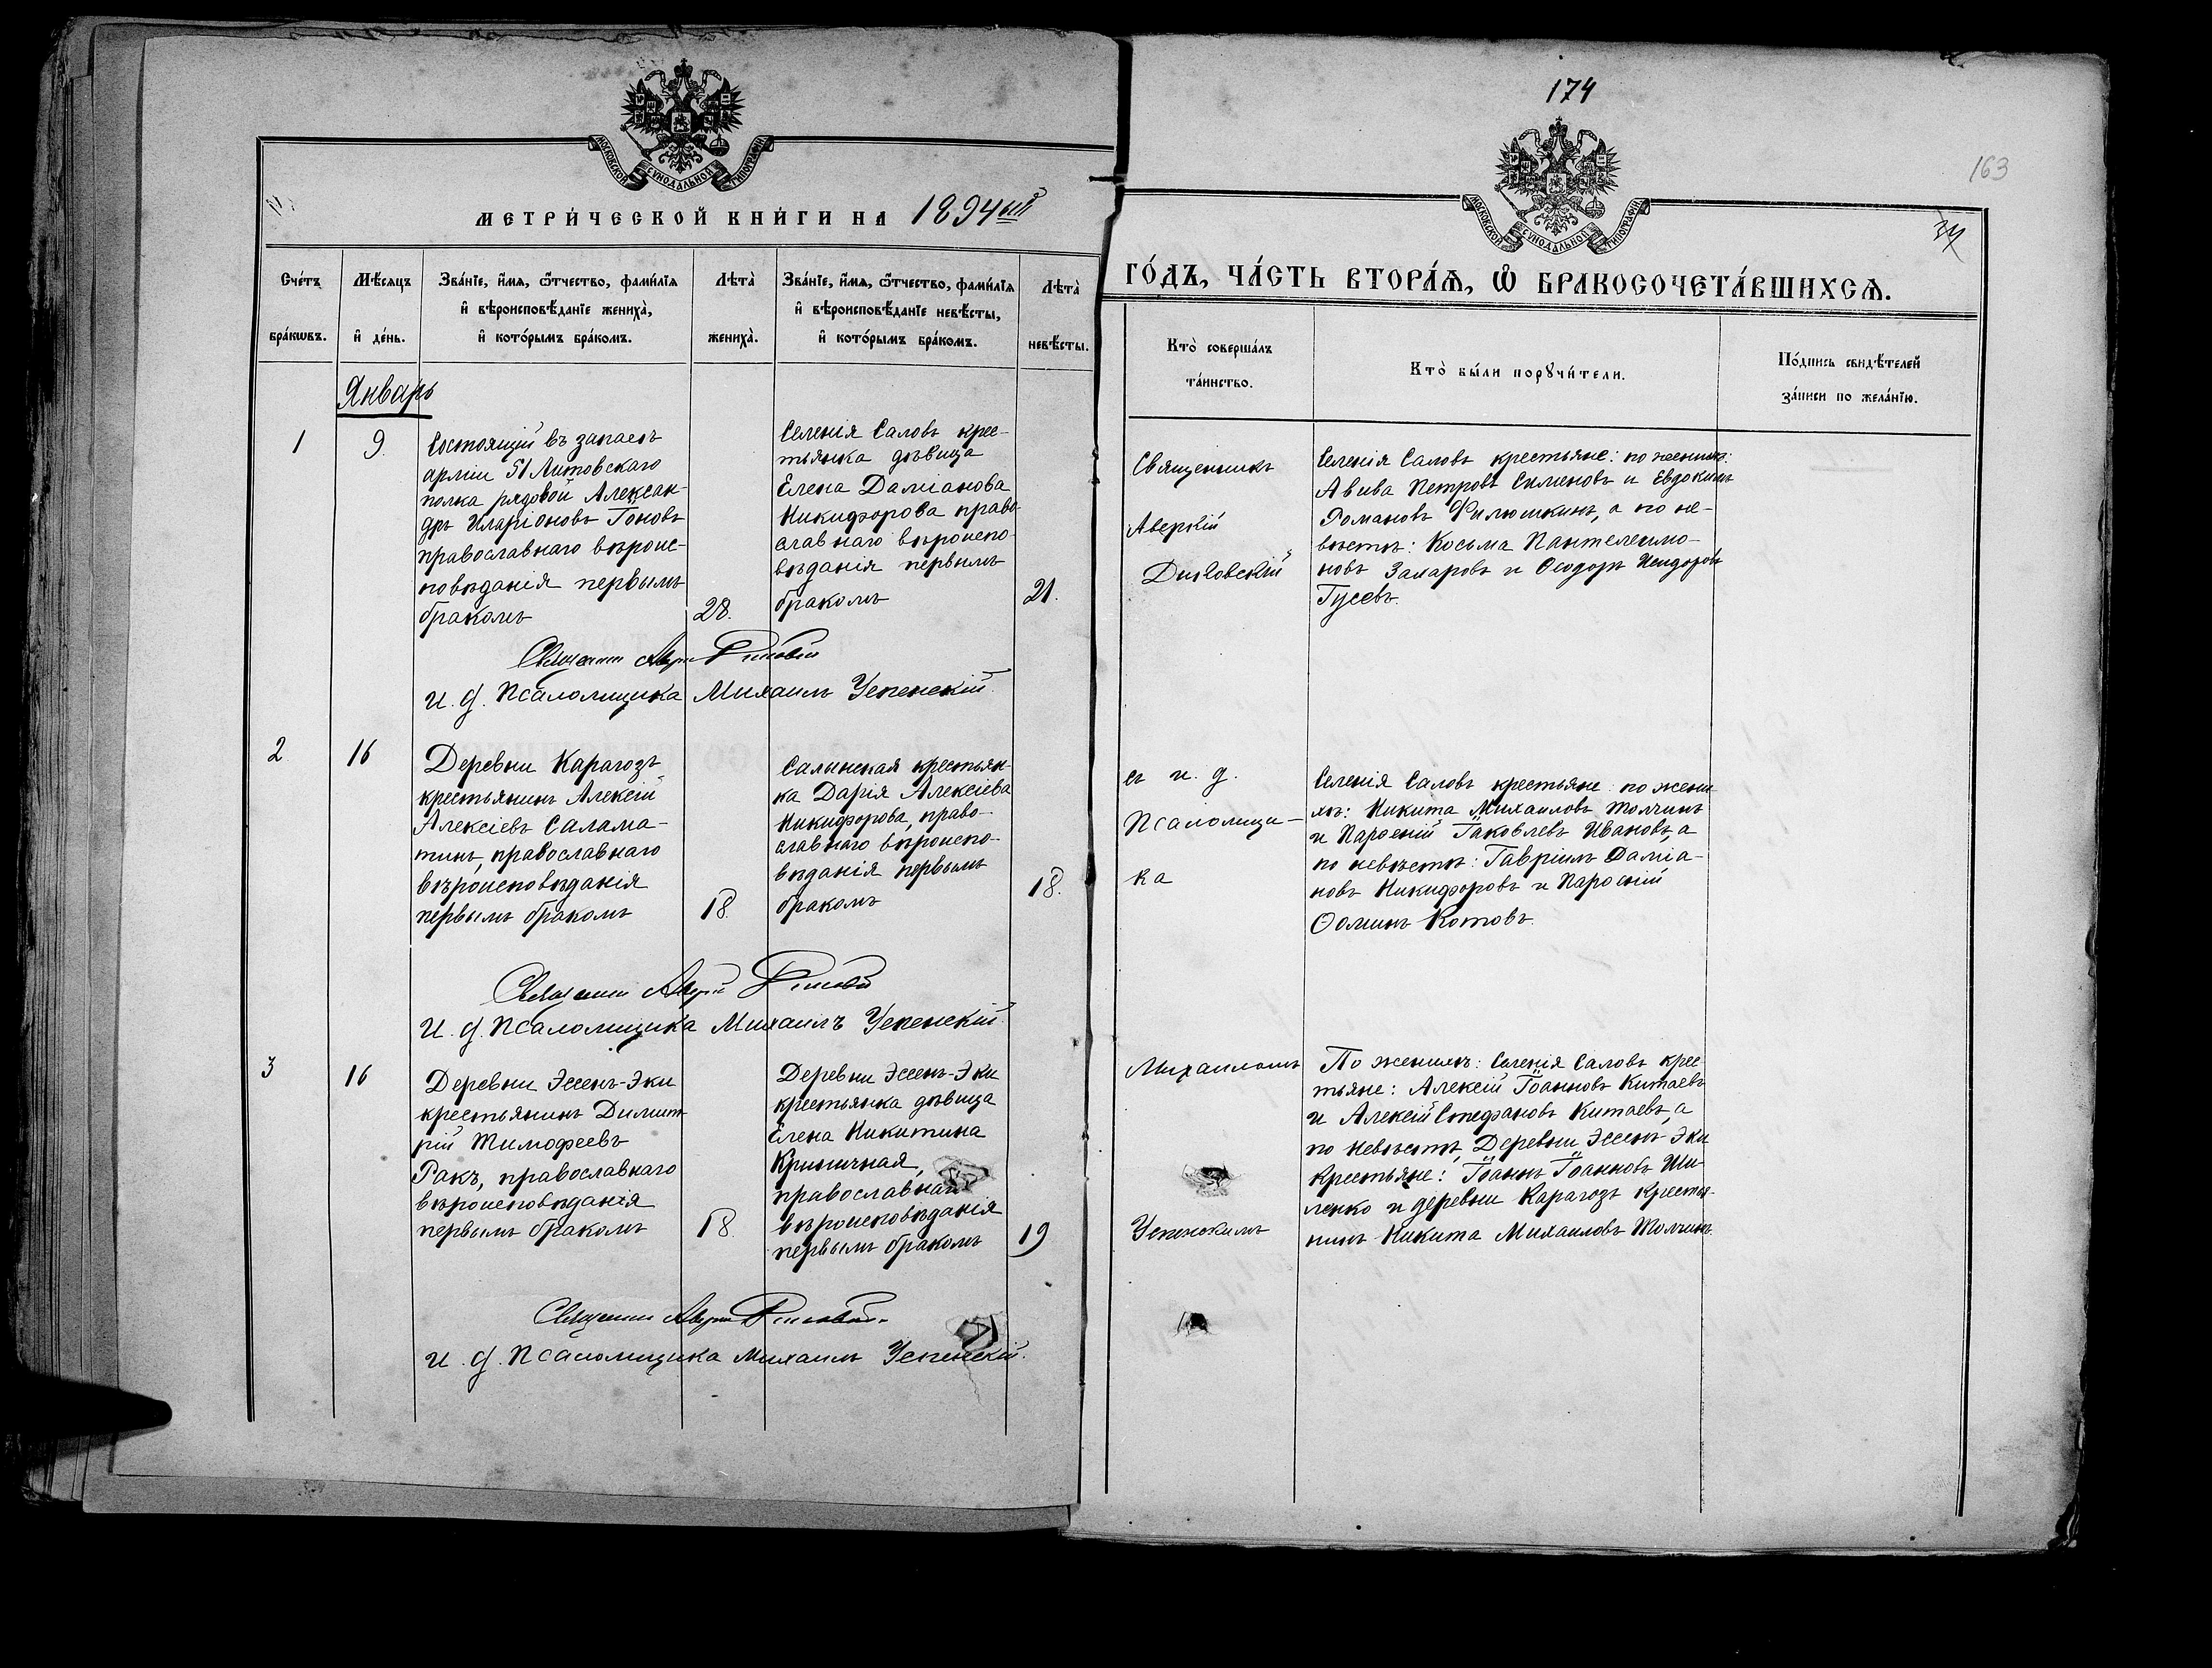 174
163
34
МОСКОВСКОЙ СѴНОДАЛЬНОЙ ТИПОГРАФІИ
МОСКОВСКОЙ СѴНОДАЛЬНОЙ ТИПОГРАФІИ
МЕТРИ́ЧЕСКОЙ КНИ́ГИ НА 1894ый
ГО́ДЪ, ЧА́СТЬ ВТОРА́Ѧ, Ѡ҆ БРАКОСОЧЕТА́ВШИХСѦ.
Сче́тъ
бра́кѡвъ.
Мѣ́сѧцъ
и҆ де́нь.
Зва́нїе, и҆́мѧ, ѻ҆́тчество, фами́лїѧ
и҆ вѣроисповѣ́данїе жениха̀,
и҆ кото́рымъ бра́комъ.
Лѣта̀
жениха̀.
Зва́нїе, и҆́мѧ, ѻ҆́тчество, фами́лїѧ
и҆ вѣроисповѣ́данїе невѣ́сты,
и҆ кото́рымъ бра́комъ.
Лѣта̀
невѣ́сты.
Кто̀ соверша́лъ
та́инство.
Кто̀ бы́ли порꙋчи́тели.
По́дпись свидѣ́телей
за́писи по жела́нїю.
Январь
1
9.
Состоящій въ запасѣ
арміи 51 Литовскаго
полка рядовой Алексан-
дръ Иларіоновъ Іоновъ
православнаго вѣроис-
повѣданія первымъ
бракомъ
28.
Селенія Саловъ крес-
тьянка дѣвица
Елена Даміанова
Никифорова право-
славнаго вѣроиспо-
вѣданія первымъ
бракомъ
21.
Священникъ
Аверкій
Селенія Саловъ крестьяне: по женихѣ:
Авива Петровъ Сименовъ и Евдокимъ
Романовъ Филюшкинъ, а по не-
вѣстѣ: Косьма Пантелеимо-
новъ Захаровъ и Ѳеодоръ Исидоровъ
Гусевъ.
и. д. Псаломщика Михаилъ Успенскій.
2
16
Деревни Карагозъ
крестьянинъ Алексій
Алексіевъ Салама-
тинъ, православнаго
вѣроисповѣданія
первымъ бракомъ
18.
Салынская крестьян-
ка Дарія Алексіева
Никифорова, право-
славнаго вѣроиспо-
вѣданія первымъ
бракомъ
18.
съ и. д.
Псаломщи-
ка
Селенія Саловъ крестьяне по жени-
хѣ: Никита Михаиловъ Толчинъ
и Парѳеній Іаковлевъ Ивановъ, а
по невѣстѣ: Гавріилъ Даміа-
новъ Никифоровъ и Парѳеній
Ѳоминъ Котовъ.
И. д. Псаломщика Михаилъ Успенскій.
3
16
Деревни Эссенъ-Эки
крестьянинъ Димит-
рій Тимофеевъ
Ракъ, православнаго
вѣроисповѣданія
первымъ бракомъ
18.
Деревни Эссенъ-Эки
крестьянка дѣвица
Елена Никитина
Криничная,
православнаго
вѣроисповѣданія
первымъ бракомъ
19
Михаиломъ
Успенскимъ
По женихѣ: Селенія Саловъ крес-
тьяне: Алексій Іоанновъ Китаевъ
и Алексій Стефановъ Китаевъ, а
по невѣстѣ, Деревни Эссенъ-Эки
Крестьяне: Іоаннъ Іоанновъ Ши-
ленко и деревни Карагозъ крестья-
нинъ Никита Михаиловъ Толчинъ.
и. д. Псаломщика Михаилъ Успенскій.